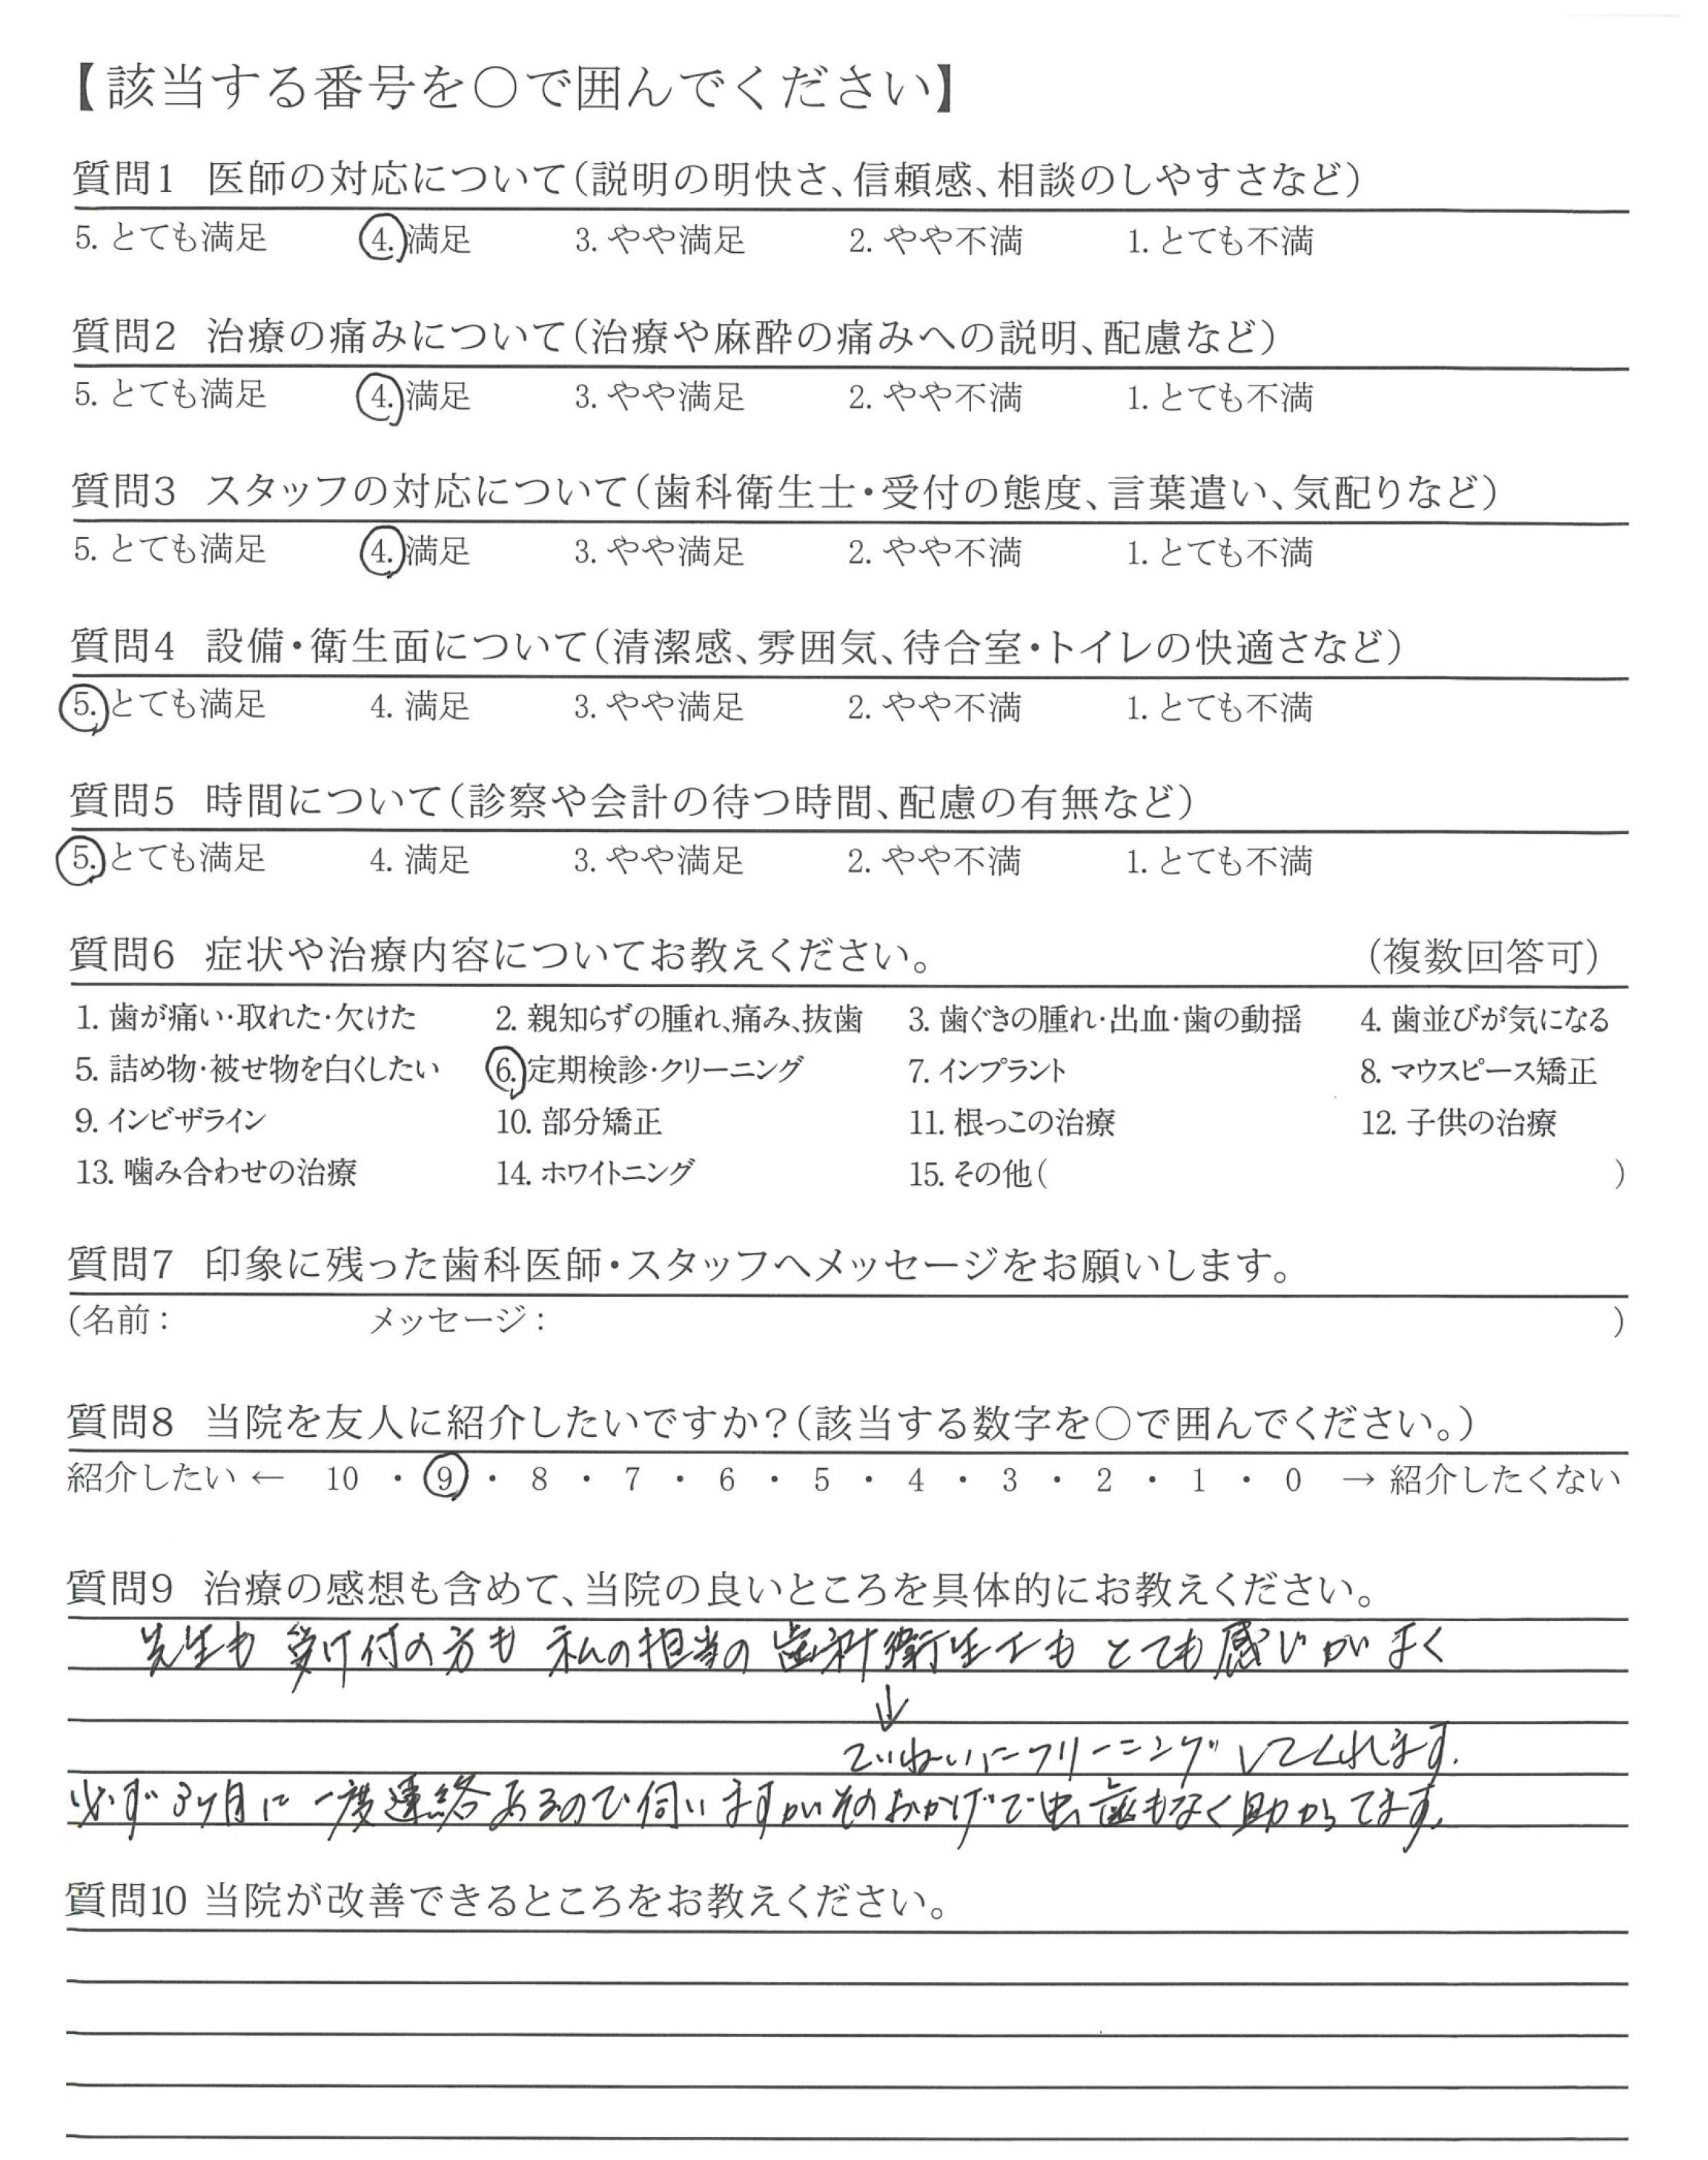 【該当する番号を○で囲んでください】
質問1 医師の対応について（説明の明快さ、信頼感、相談のしやすさなど）
5. とても満足 4. 満足 3. やや満足 2. やや不満 1. とても不満
質問2 治療の痛みについて（治療や麻酔の痛みへの説明、配慮など）
5. とても満足 4. 満足 3. やや満足 2. やや不満 1. とても不満
質問3 スタッフの対応について（歯科衛生士・受付の態度、言葉遣い、気配りなど）
5. とても満足 4. 満足 3. やや満足 2. やや不満 1. とても不満
質問4 設備・衛生面について（清潔感、雰囲気、待合室・トイレの快適さなど）
5. とても満足 4. 満足 3. やや満足 2. やや不満 1. とても不満
質問5 時間について（診察や会計の待つ時間、配慮の有無など）
5. とても満足 4. 満足 3. やや満足 2. やや不満 1. とても不満
質問6 症状や治療内容についてお教えください。 （複数回答可）
1. 歯が痛い・取れた・欠けた 2. 親知らずの腫れ、痛み、抜歯 3. 歯ぐきの腫れ・出血・歯の動揺 4. 歯並びが気になる
5. 詰め物・被せ物を白くしたい 6. 定期検診・クリーニング 7. インプラント 8. マウスピース矯正
9. インビザライン 10. 部分矯正 11. 根っこの治療 12. 子供の治療
13. 噛み合わせの治療 14. ホワイトニング 15. その他（ ）
質問7 印象に残った歯科医師・スタッフへメッセージをお願いします。
（名前： メッセージ： ）
質問8 当院を友人に紹介したいですか？（該当する数字を○で囲んでください。）
紹介したい ← 10 ・ 9 ・ 8 ・ 7 ・ 6 ・ 5 ・ 4 ・ 3 ・ 2 ・ 1 ・ 0 → 紹介したくない
質問9 治療の感想も含めて、当院の良いところを具体的にお教えください。
先生も 受け付の方も 私の担当の 歯科衛生士も とても感じがよく
↓
ていねいにクリーニングしてくれます。
必ず3ヶ月に一度連絡あるので伺いますがそのおかげで虫歯もなく助かってます。
質問10 当院が改善できるところをお教えください。